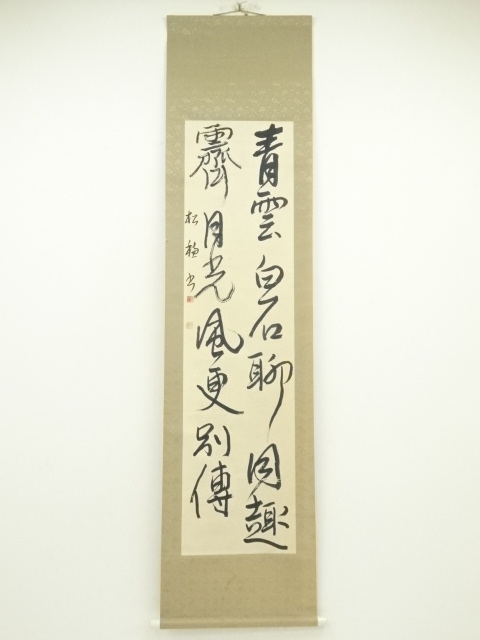 青雲白石聊同趣
霽月光風更別傳
松穂書